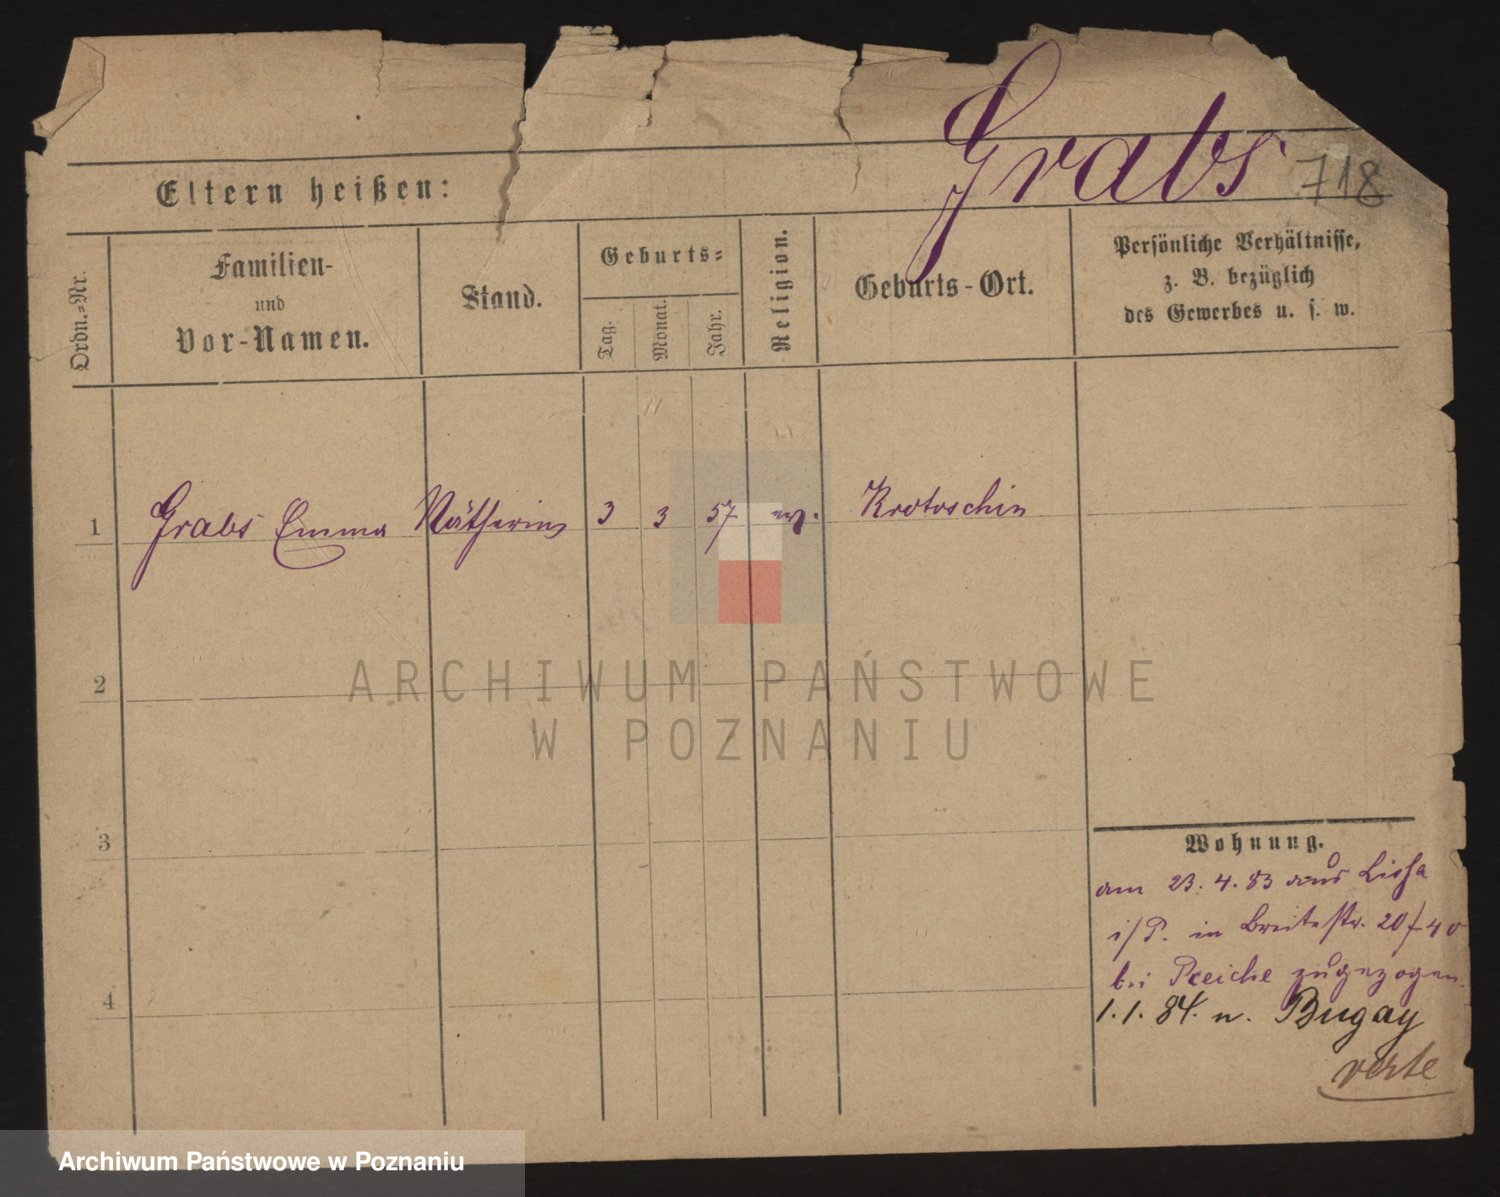 Grabs 718
Eltern heißen:
Ordn.-Nr.
Familien-
und
Vor-Namen.
Stand.
Geburts-
Tag.
Monat.
Jahr.
Religion.
Geburts-Ort.
Persönliche Verhältnisse,
z. B. bezüglich
des Gewerbes u. s. w.
1 Grabs Emma Nätherin 3 3 57 ev. Krotoschin
2
3
4
Wohnung.
am 23. 4. 83 aus Lissa
i/P. in Breitestr. 20/40
bei Preiche zugezogen.
1.1.84. n. Bugay
verte
ARCHIWUM PAŃSTWOWE
W POZNANIU
Archiwum Państwowe w Poznaniu